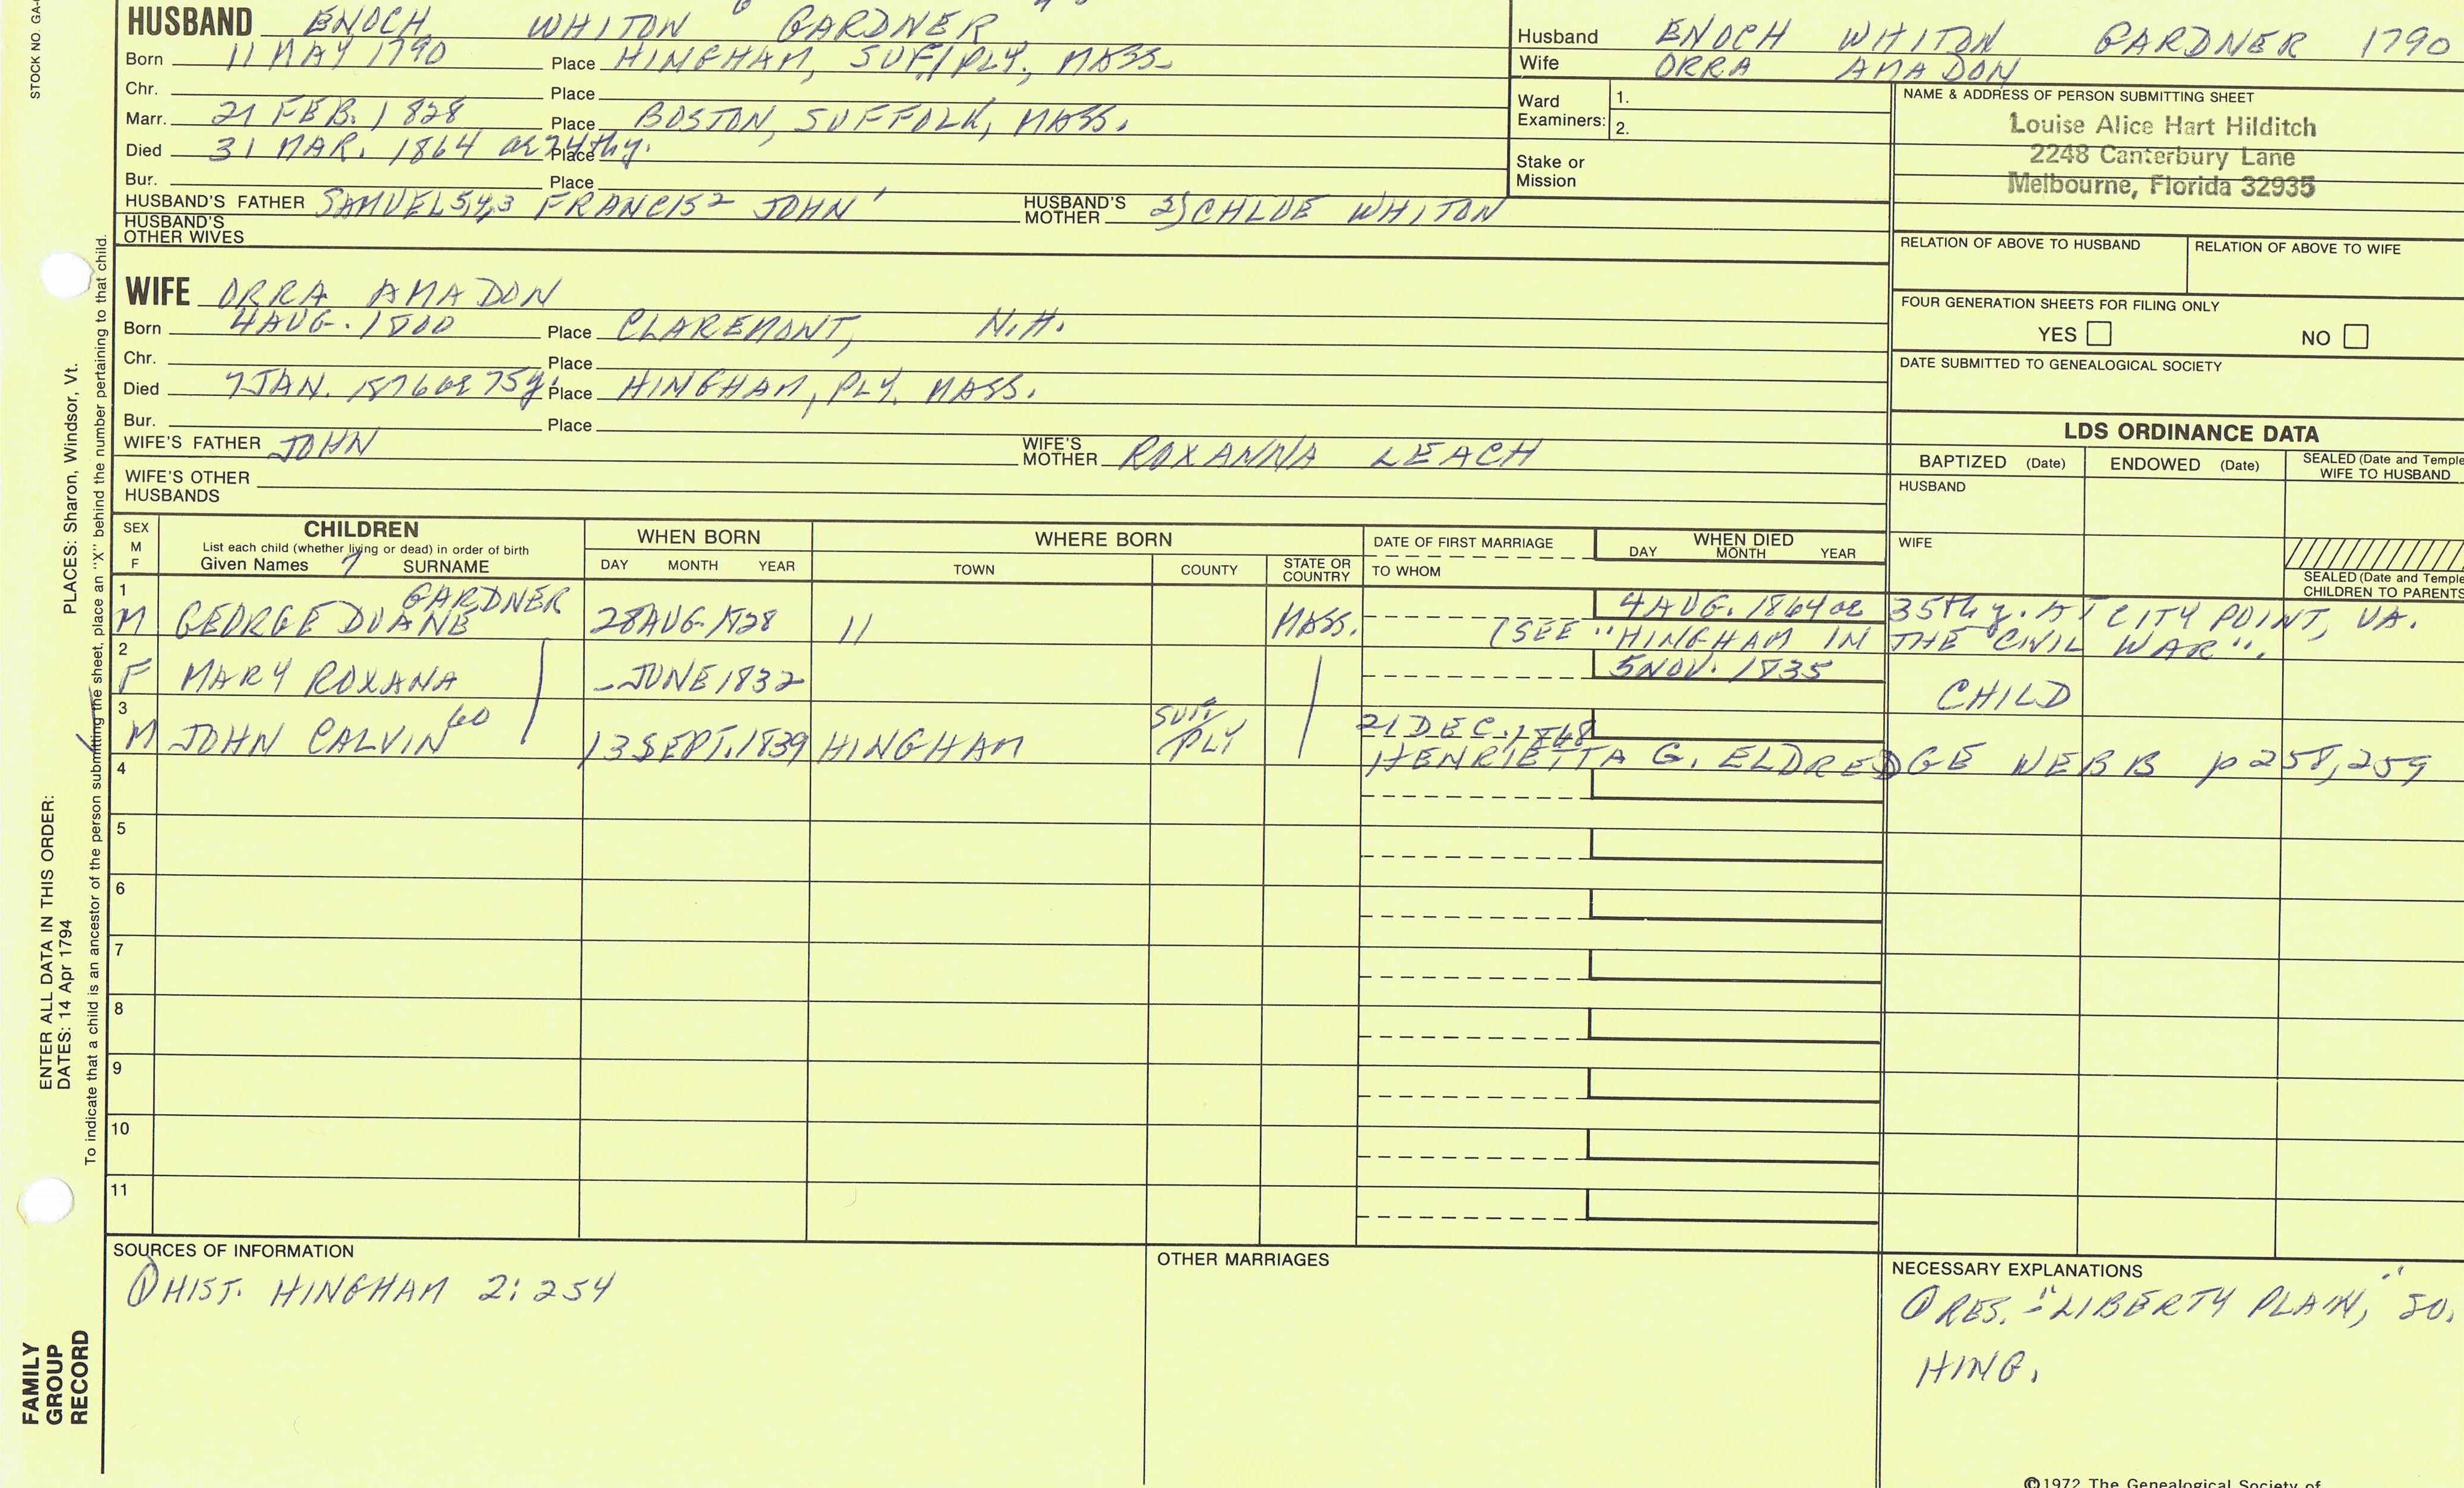 STOCK NO. GA-
HUSBAND ENOCH WHITON GARDNER
Born 11 MAY 1790 Place HINGHAM, SUF/PLY, MASS.
Chr. Place
Marr. 21 FEB. 1828 Place BOSTON, SUFFOLK, MASS.
Died 31 MAR. 1864 ae 74th y. Place
Bur. Place
HUSBAND'S FATHER SAMUEL 5,4,3 FRANCIS 2 JOHN 1 HUSBAND'S MOTHER 2) CHLOE WHITON
HUSBAND'S OTHER WIVES
WIFE ORRA AMADON
Born 4 AUG. 1800 Place CLAREMONT, N.H.
Chr. Place
Died 7 JAN. 1876 ae 75 y. Place HINGHAM, PLY. MASS.
Bur. Place
WIFE'S FATHER JOHN WIFE'S MOTHER ROXANNA LEACH
WIFE'S OTHER HUSBANDS
Husband ENOCH WHITON GARDNER 1790
Wife ORRA AMADON
Ward Examiners: 1.
2.
Stake or Mission
NAME & ADDRESS OF PERSON SUBMITTING SHEET
Louise Alice Hart Hilditch
2248 Canterbury Lane
Melbourne, Florida 32935
RELATION OF ABOVE TO HUSBAND RELATION OF ABOVE TO WIFE
FOUR GENERATION SHEETS FOR FILING ONLY
YES NO
DATE SUBMITTED TO GENEALOGICAL SOCIETY
LDS ORDINANCE DATA
BAPTIZED (Date) ENDOWED (Date) SEALED (Date and Temple
WIFE TO HUSBAND
HUSBAND
WIFE
SEALED (Date and Temple
CHILDREN TO PARENTS
SEX M F
CHILDREN
List each child (whether living or dead) in order of birth
Given Names 7 SURNAME
WHEN BORN
DAY MONTH YEAR
WHERE BORN
TOWN COUNTY STATE OR COUNTRY
DATE OF FIRST MARRIAGE
TO WHOM
WHEN DIED
DAY MONTH YEAR
1 GARDNER 4 AUG. 1864 ae 35th y. AT CITY POINT, VA.
M GEORGE DUANE 28 AUG. 1828 11 MASS. (SEE "HINGHAM IN THE CIVIL WAR".
2 5 NOV. 1835
F MARY ROXANA _ JUNE 1832 CHILD
3 60 SUF/ 21 DEC. 1868
M JOHN CALVIN 13 SEPT. 1839 HINGHAM PLY
HENRIETTA G. ELDREDGE NEBB p 258, 259
4
5
6
7
8
9
10
11
SOURCES OF INFORMATION
① HIST. HINGHAM 2: 254
OTHER MARRIAGES
NECESSARY EXPLANATIONS
① RES. - "LIBERTY PLAIN," SO.
HING.
©1972 The Genealogical Society of
PLACES: Sharon, Windsor, Vt.
To indicate that a child is an ancestor of the person submitting the sheet, place an "X" behind the number pertaining to that child.
ENTER ALL DATA IN THIS ORDER:
DATES: 14 Apr 1794
FAMILY
GROUP
RECORD